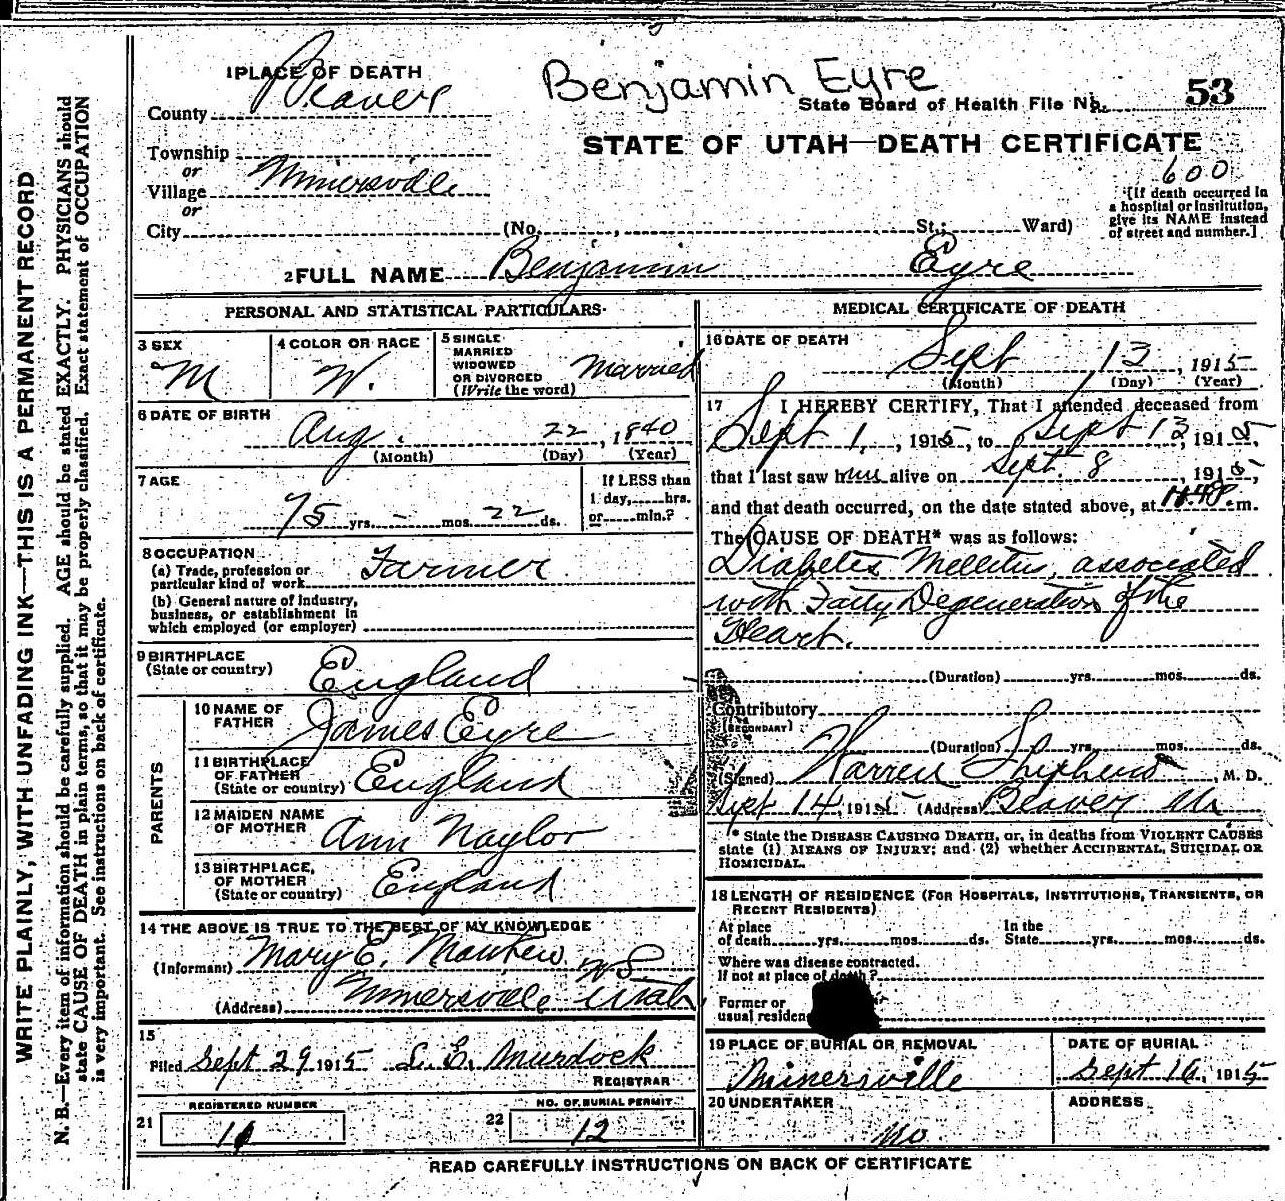 Benjamin Eyre
1 PLACE OF DEATH
County Beaver
State Board of Health File No. 53
STATE OF UTAH—DEATH CERTIFICATE
Township
or
Village Minersville
or
City (No. , St.; Ward)
600
[If death occurred in
a hospital or institution,
give its NAME instead
of street and number.]
2 FULL NAME Benjamin Eyre
PERSONAL AND STATISTICAL PARTICULARS
3 SEX
M
4 COLOR OR RACE
W.
5 SINGLE
MARRIED
WIDOWED
OR DIVORCED
(Write the word)
Married
6 DATE OF BIRTH
Aug. 22, 1840
(Month) (Day) (Year)
7 AGE
75 yrs. - mos. 22 ds.
If LESS than
1 day, hrs.
or min.?
8 OCCUPATION
(a) Trade, profession or
particular kind of work Farmer
(b) General nature of industry,
business, or establishment in
which employed (or employer)
9 BIRTHPLACE
(State or country) England
PARENTS
10 NAME OF
FATHER James Eyre
11 BIRTHPLACE
OF FATHER
(State or country) England
12 MAIDEN NAME
OF MOTHER Ann Naylor
13 BIRTHPLACE,
OF MOTHER
(State or country) England
14 THE ABOVE IS TRUE TO THE BEST OF MY KNOWLEDGE
(Informant) Mary E.
(Address) Minersville Utah
15
Filed Sept 29 1915 L. E. Murdock
REGISTRAR
REGISTERED NUMBER
21
NO. OF BURIAL PERMIT
22 12
MEDICAL CERTIFICATE OF DEATH
16 DATE OF DEATH
Sept 13, 1915
(Month) (Day) (Year)
17 I HEREBY CERTIFY, That I attended deceased from
Sept 1, 1915, to Sept 13, 1915,
that I last saw him alive on Sept. 8, 1915,
and that death occurred, on the date stated above, at m.
The CAUSE OF DEATH* was as follows:
Diabetes Mellitus, associated
with Fatty Degeneration of the
Heart.
(Duration) yrs. mos. ds.
Contributory
[SECONDARY]
(Duration) yrs. mos. ds.
(Signed) Warren Shepherd, M. D.
Sept 14, 1915 (Address) Beaver
* State the DISEASE CAUSING DEATH, or, in deaths from VIOLENT CAUSES
state (1) MEANS OF INJURY; and (2) whether ACCIDENTAL, SUICIDAL OR
HOMICIDAL.
18 LENGTH OF RESIDENCE (FOR HOSPITALS, INSTITUTIONS, TRANSIENTS, OR
RECENT RESIDENTS)
At place
of death yrs. mos. ds.
In the
State yrs. mos. ds.
Where was disease contracted.
If not at place of death?
Former or
usual residen
19 PLACE OF BURIAL OR REMOVAL
Minersville
DATE OF BURIAL
Sept 16, 1915
20 UNDERTAKER
No
ADDRESS
READ CAREFULLY INSTRUCTIONS ON BACK OF CERTIFICATE
WRITE PLAINLY, WITH UNFADING INK—THIS IS A PERMANENT RECORD
N. B.—Every item of information should be carefully supplied. AGE should be stated EXACTLY. PHYSICIANS should
state CAUSE OF DEATH in plain terms, so that it may be properly classified. Exact statement of OCCUPATION
is very important. See instructions on back of certificate.